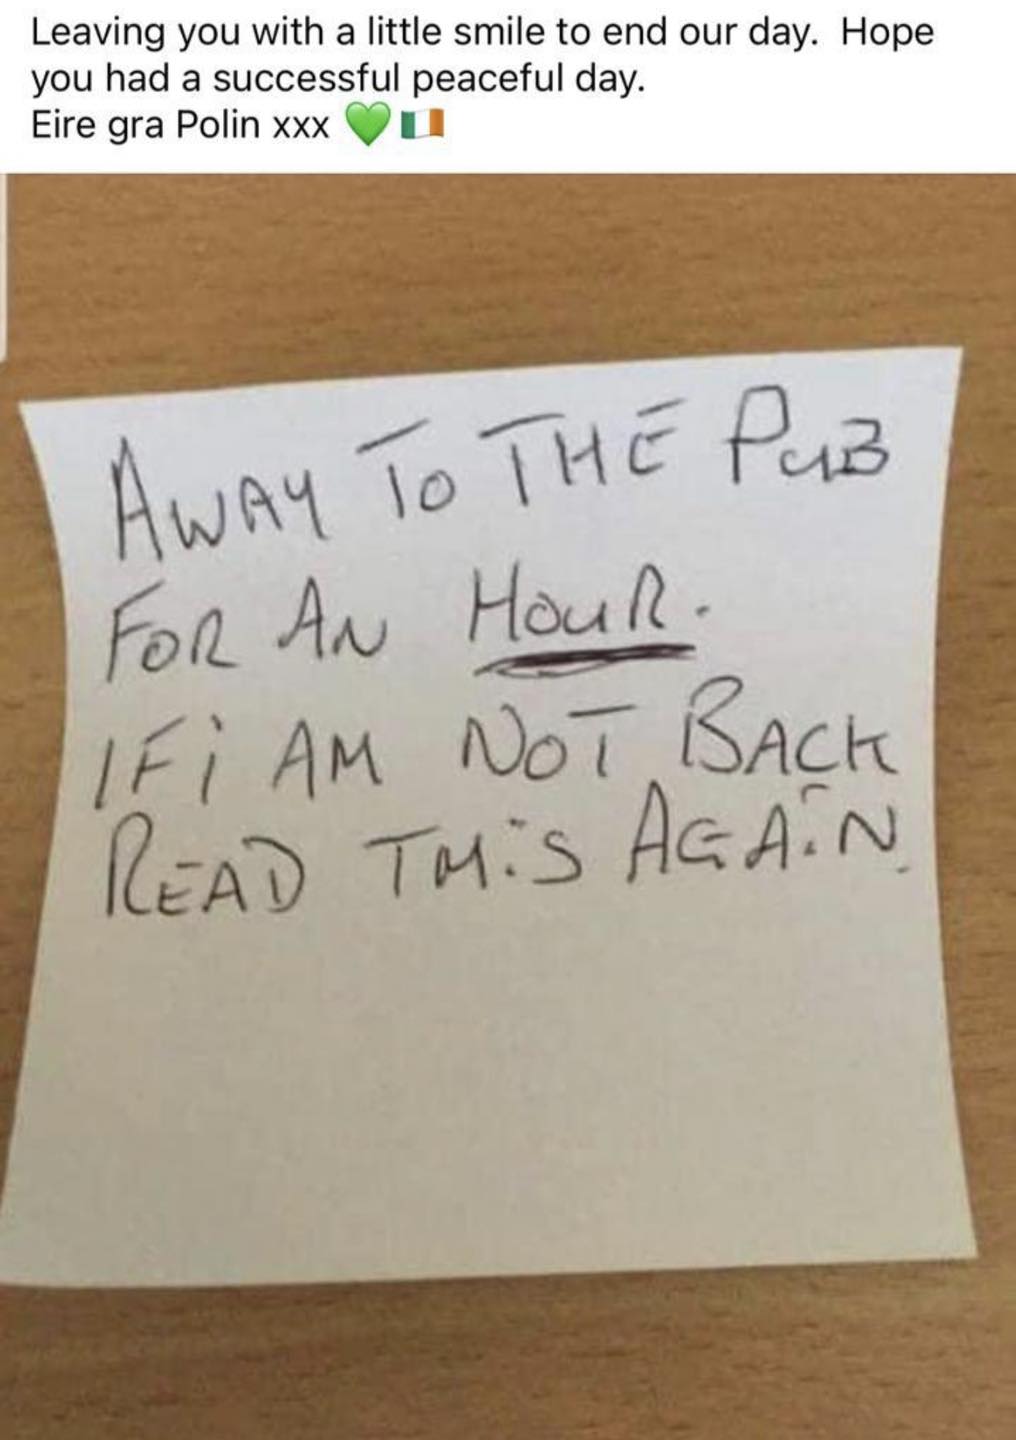 Leaving you with a little smile to end our day.  Hope
you had a successful peaceful day.
Eire gra Polin xxx 💚🇮🇪
AWAY TO THE PuB
FOR AN HouR.
IF i AM NOT BACK
READ THiS AGAiN.